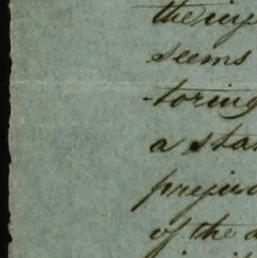 the
seems
-toring
a sta
prejud
of the a